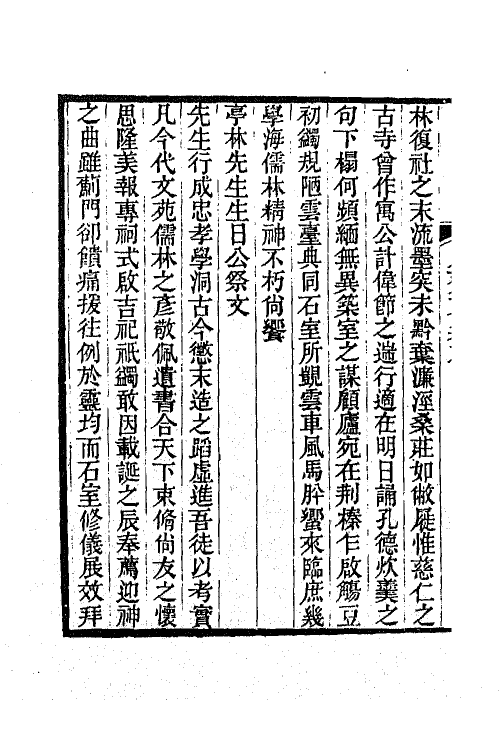 林復社之末流墨突未黔棄濂涇桑莊如敝屣惟慈仁之
古寺曾作寓公計偉節之遄行適在明日誦孔德炊羹之
句下榻何頻緬無異築室之謀顧廬宛在荆榛乍啟觴豆
初蠲規陋雲臺典同石室所覬雲車風馬肸蠁來臨庶幾
學海儒林精神不朽尙饗
亭林先生生日公祭文
先生行成忠孝學洞古今懲末造之蹈虛進吾徒以考實
凡今代文苑儒林之彥敬佩遺書合天下束脩尙友之懷
思隆美報專祠式啟吉祀祇蠲敢因載誕之辰奉薦迎神
之曲雖薊門卻饋痛援往例於靈均而石室修儀展效拜